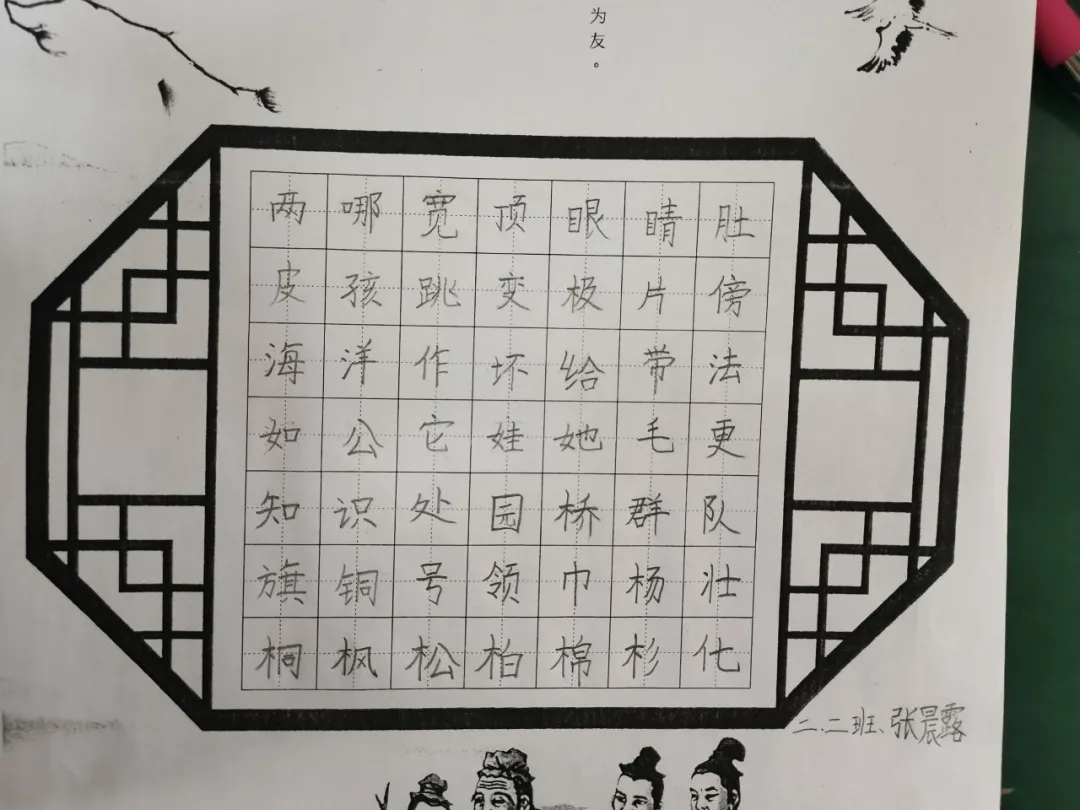 为友。
两哪宽顶眼睛肚
皮孩跳变极片傍
海洋作坏给带法
如公它娃她毛更
知识处园桥群队
旗铜号领巾杨壮
桐枫松柏棉杉化
二.二班、张晨露